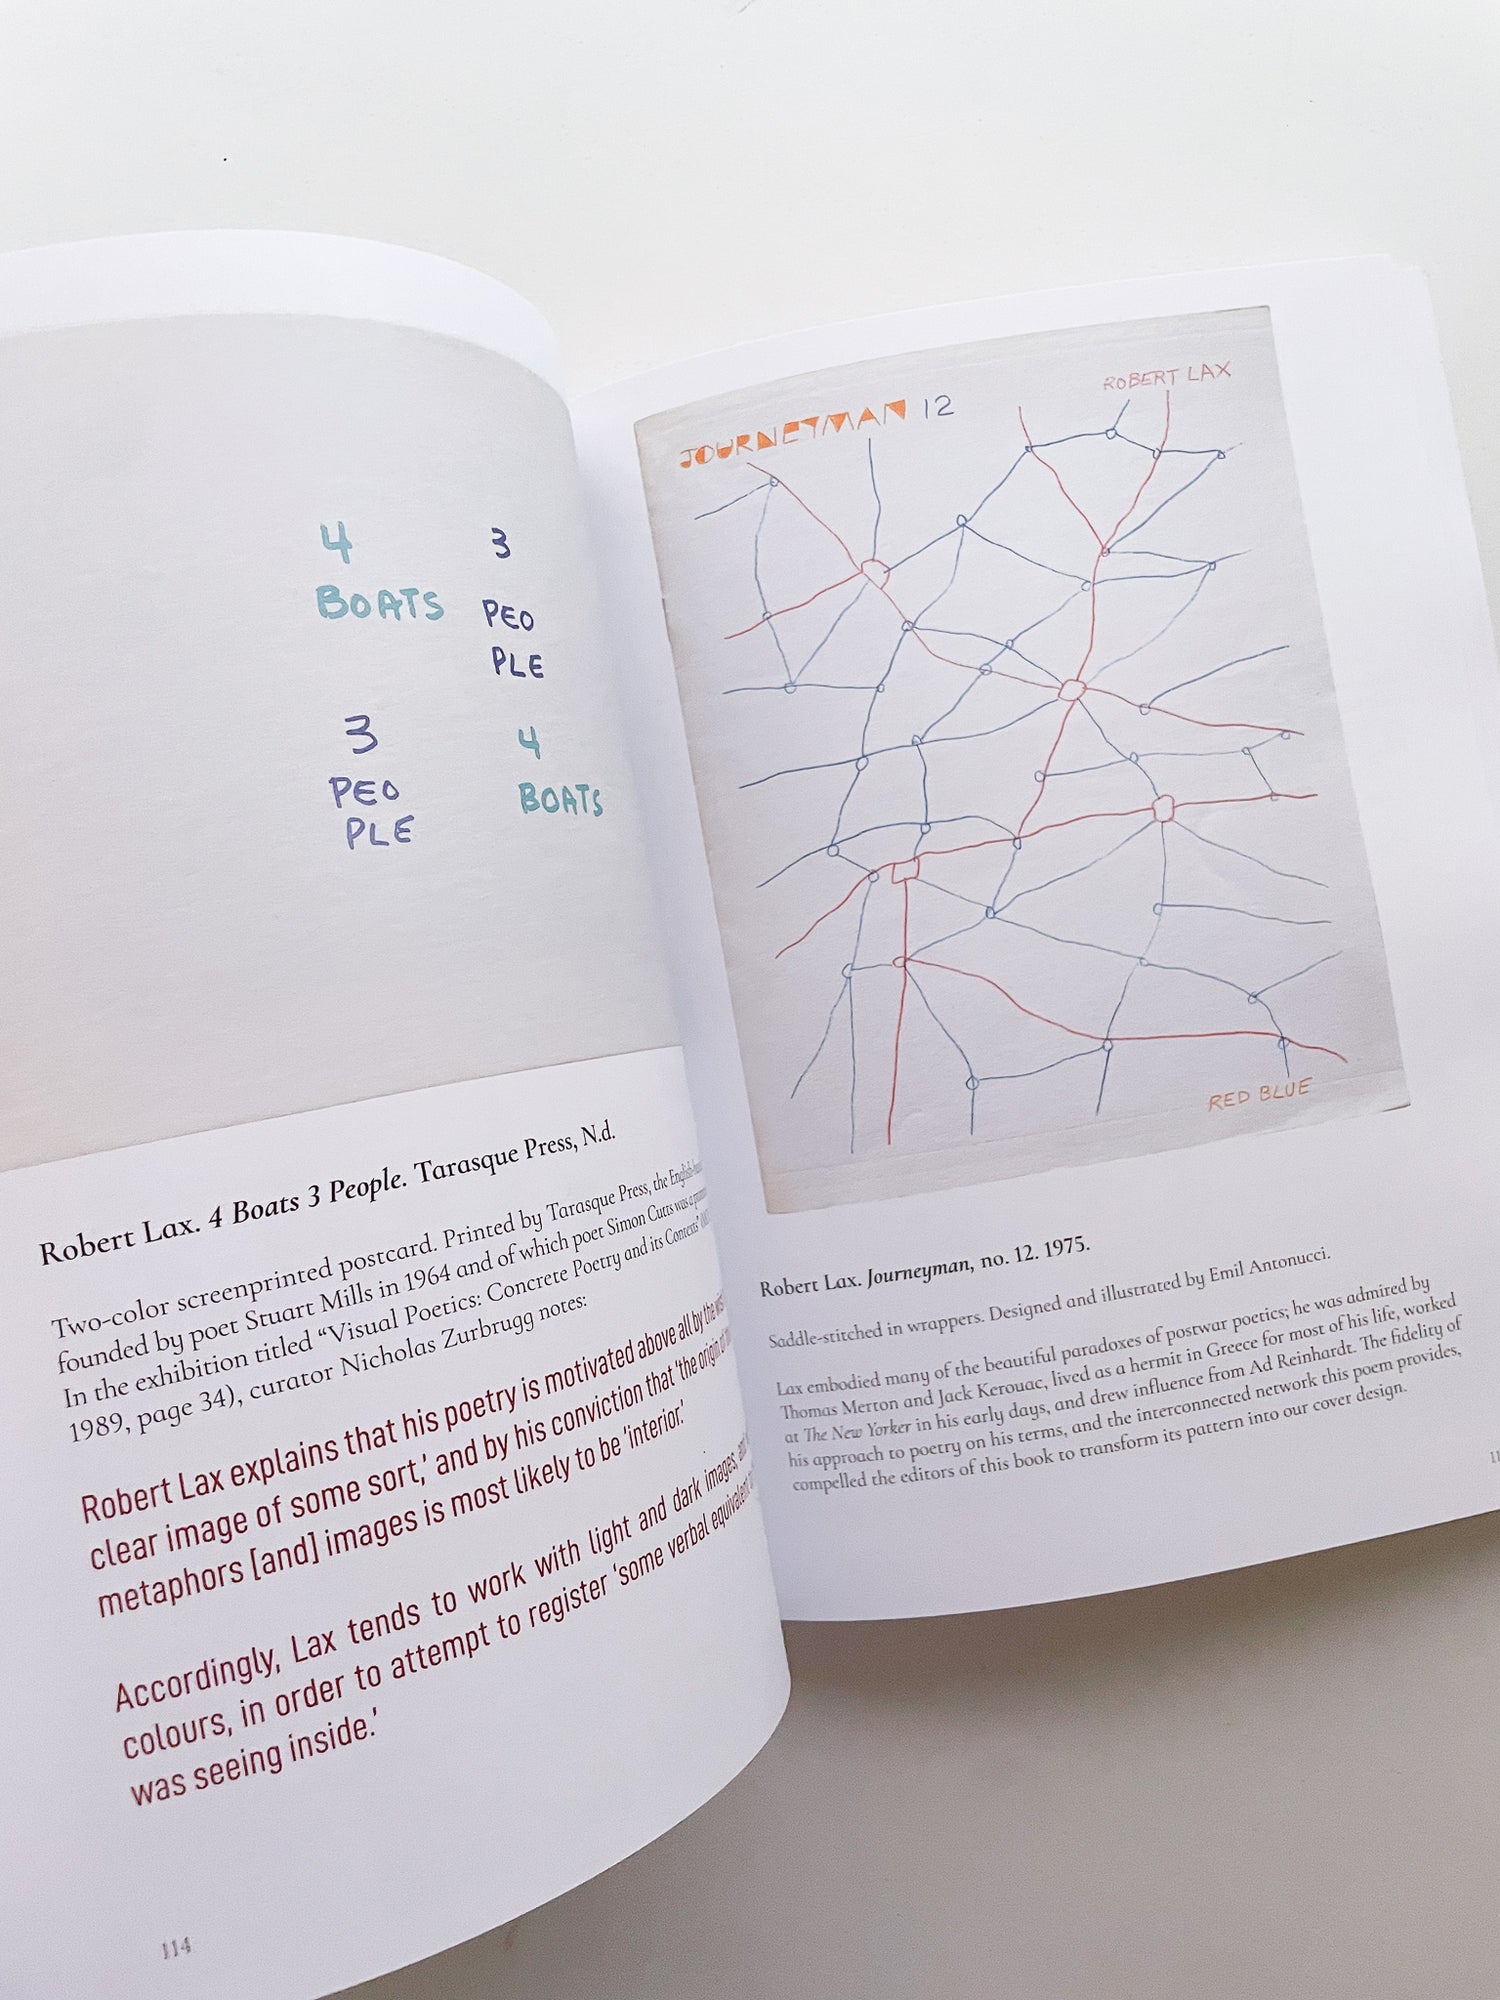 4 3
BOATS PEO
PLE
3 4
PEO BOATS
PLE
Robert Lax. 4 Boats 3 People. Tarasque Press, N.d.
Two-color screenprinted postcard. Printed by Tarasque Press, the
founded by poet Stuart Mills in 1964 and of which poet Simon Cutts was a
In the exhibition titled “Visual Poetics: Concrete Poetry and its Contexts”
1989, page 34), curator Nicholas Zurbrugg notes:
Robert Lax explains that his poetry is motivated above all by the
clear image of some sort,’ and by his conviction that ‘the origin of
metaphors [and] images is most likely to be ‘interior.’
Accordingly, Lax tends to work with light and dark images,
colours, in order to attempt to register ‘some verbal equivalent
was seeing inside.’
114
JOURNEYMAN 12
ROBERT LAX
RED BLUE
Robert Lax. Journeyman, no. 12. 1975.
Saddle-stitched in wrappers. Designed and illustrated by Emil Antonucci.
Lax embodied many of the beautiful paradoxes of postwar poetics; he was admired by
Thomas Merton and Jack Kerouac, lived as a hermit in Greece for most of his life, worked
at The New Yorker in his early days, and drew influence from Ad Reinhardt. The fidelity of
his approach to poetry on his terms, and the interconnected network this poem provides,
compelled the editors of this book to transform its pattern into our cover design.